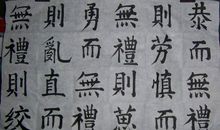 恭而無禮
則勞慎而
無禮則葸
勇而無禮
則亂直而
無禮則絞